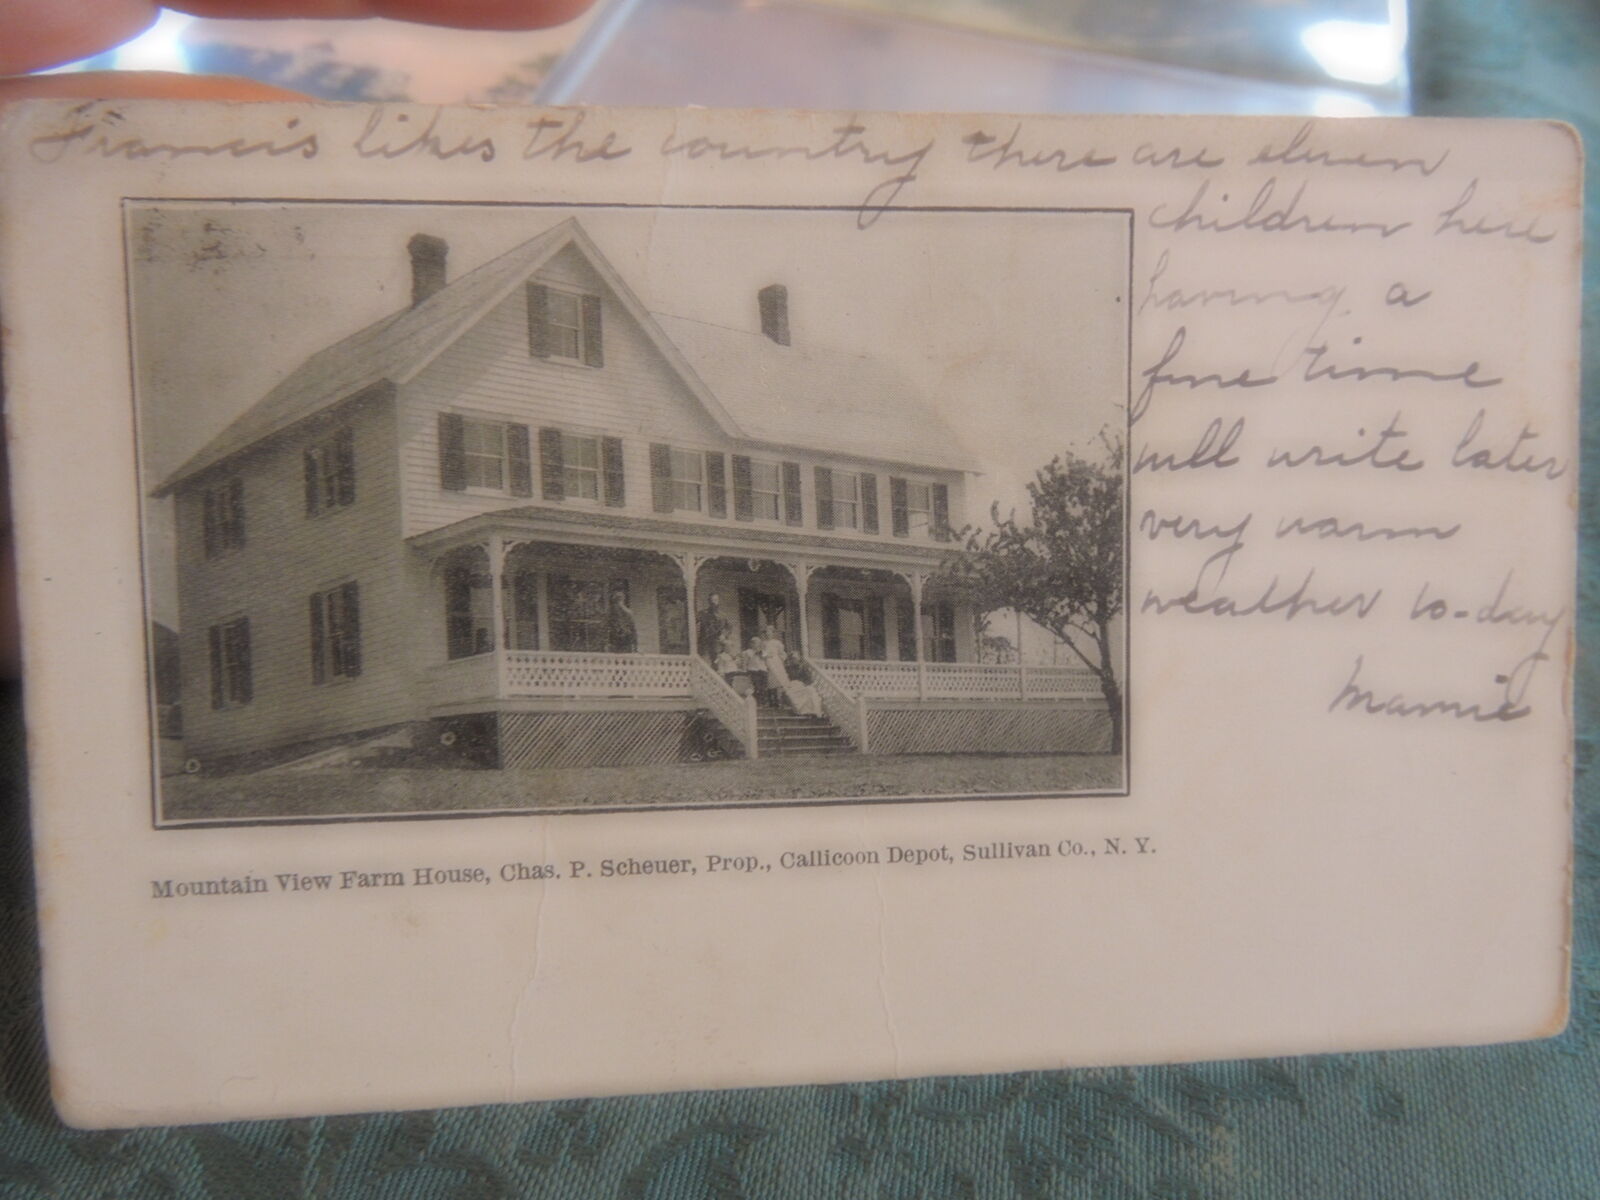 Francis likes the country there are eleven
children here
having a
fine time
will write later
very warm
weather to-day
Mamie
Mountain View Farm House, Chas. P. Scheuer, Prop., Callicoon Depot, Sullivan Co., N. Y.